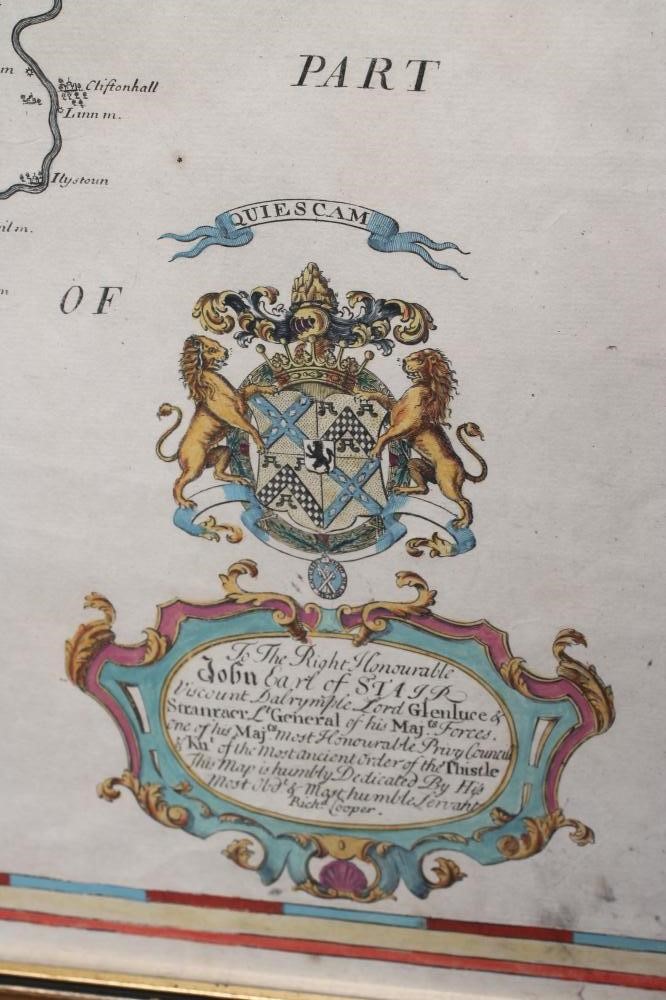 PART
m
Cliftonhall
Linn m.
Ilystoun
QUIESCAM
OF
To The Right Honourable
John Earl of STAIR
Viscount Dalrymple Lord Glenluce &
Stranraer Lt General of his Majts Forces.
one of his Majts most Honourable Privy Council
& Knt of the most ancient Order of the Thistle
This Map is humbly Dedicated By His
Most Obdt & Most humble Servant
Richd Cooper.